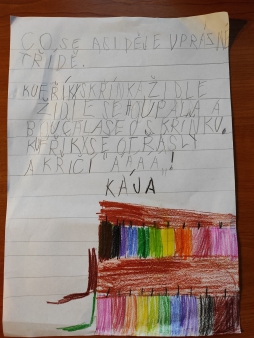 CO SE ASI DĚJE V PRÁZN
TŘÍDĚ.
KUFŘÍK SKŘÍŇKA ŽIDLE
ŽIDLE SE HOUPALA A
BOUCHLA SE O SKŘÍŇKU.
KUFŘÍKY SE OTŘÁSLY
A KŘIČÍ "ÁÁÁÁ"!
KÁJA